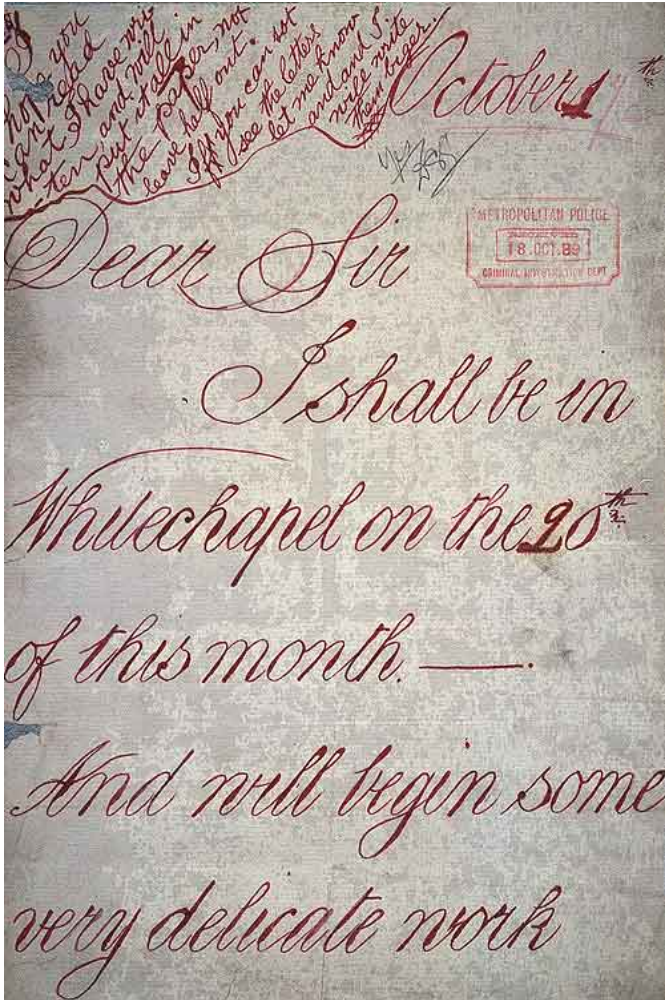 hope you
can read
what I have writ
ten and will
put it all in
the paper, not
leave half out.
If you can not
see the letters
let me know
and and I
will write
them biger.
October 1
th
METROPOLITAN POLICE
18.OCT.89
CRIMINAL INVESTIGATION DEPT
Dear Sir
I shall be in
Whitechapel on the 20th
of this month. —.
And will begin some
very delicate work